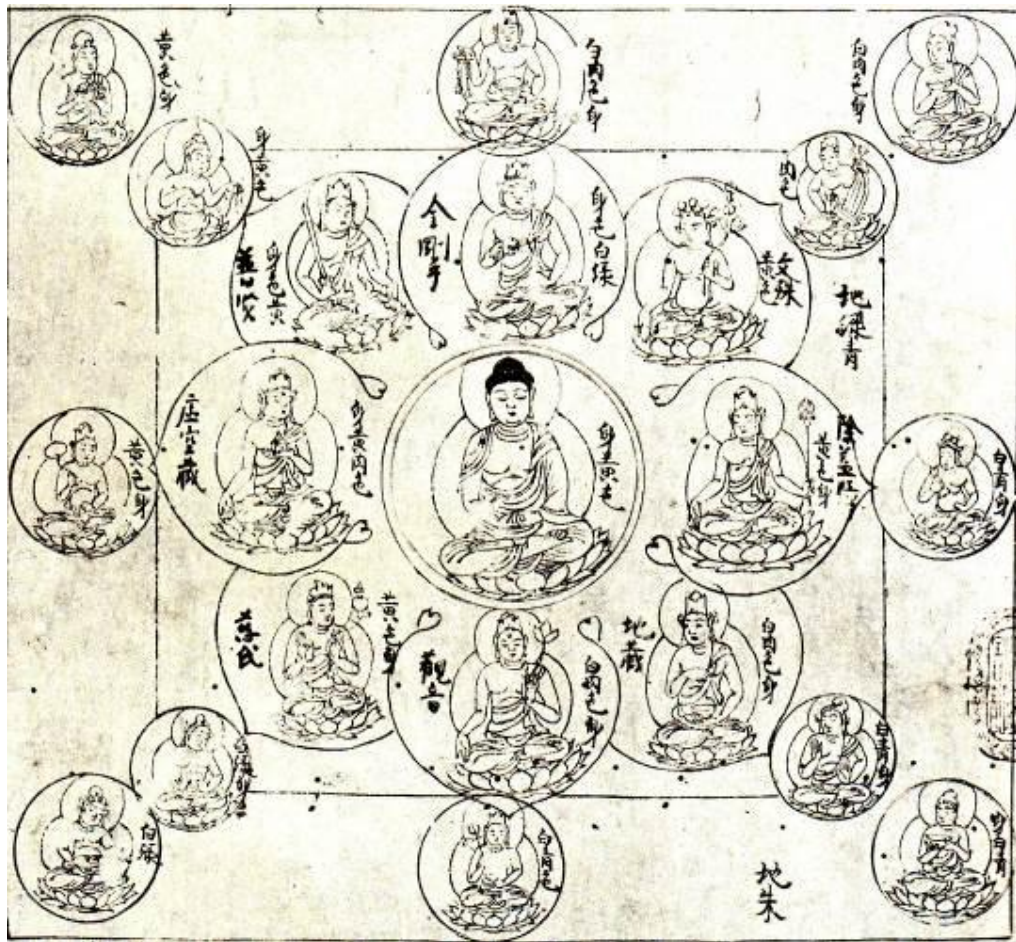 黄色身
白肉色身
白肉色身
身黄色
肉色
身色黄
金剛手
身色白緑
文殊
黄色
地緑青
虚空蔵
身黄肉色
身色黄色
除蓋障
黄色身
黄色身
白青身
慈氏
黄色身
観音
白肉色身
地蔵
白肉色身
白青身
白緑
白青色
地朱